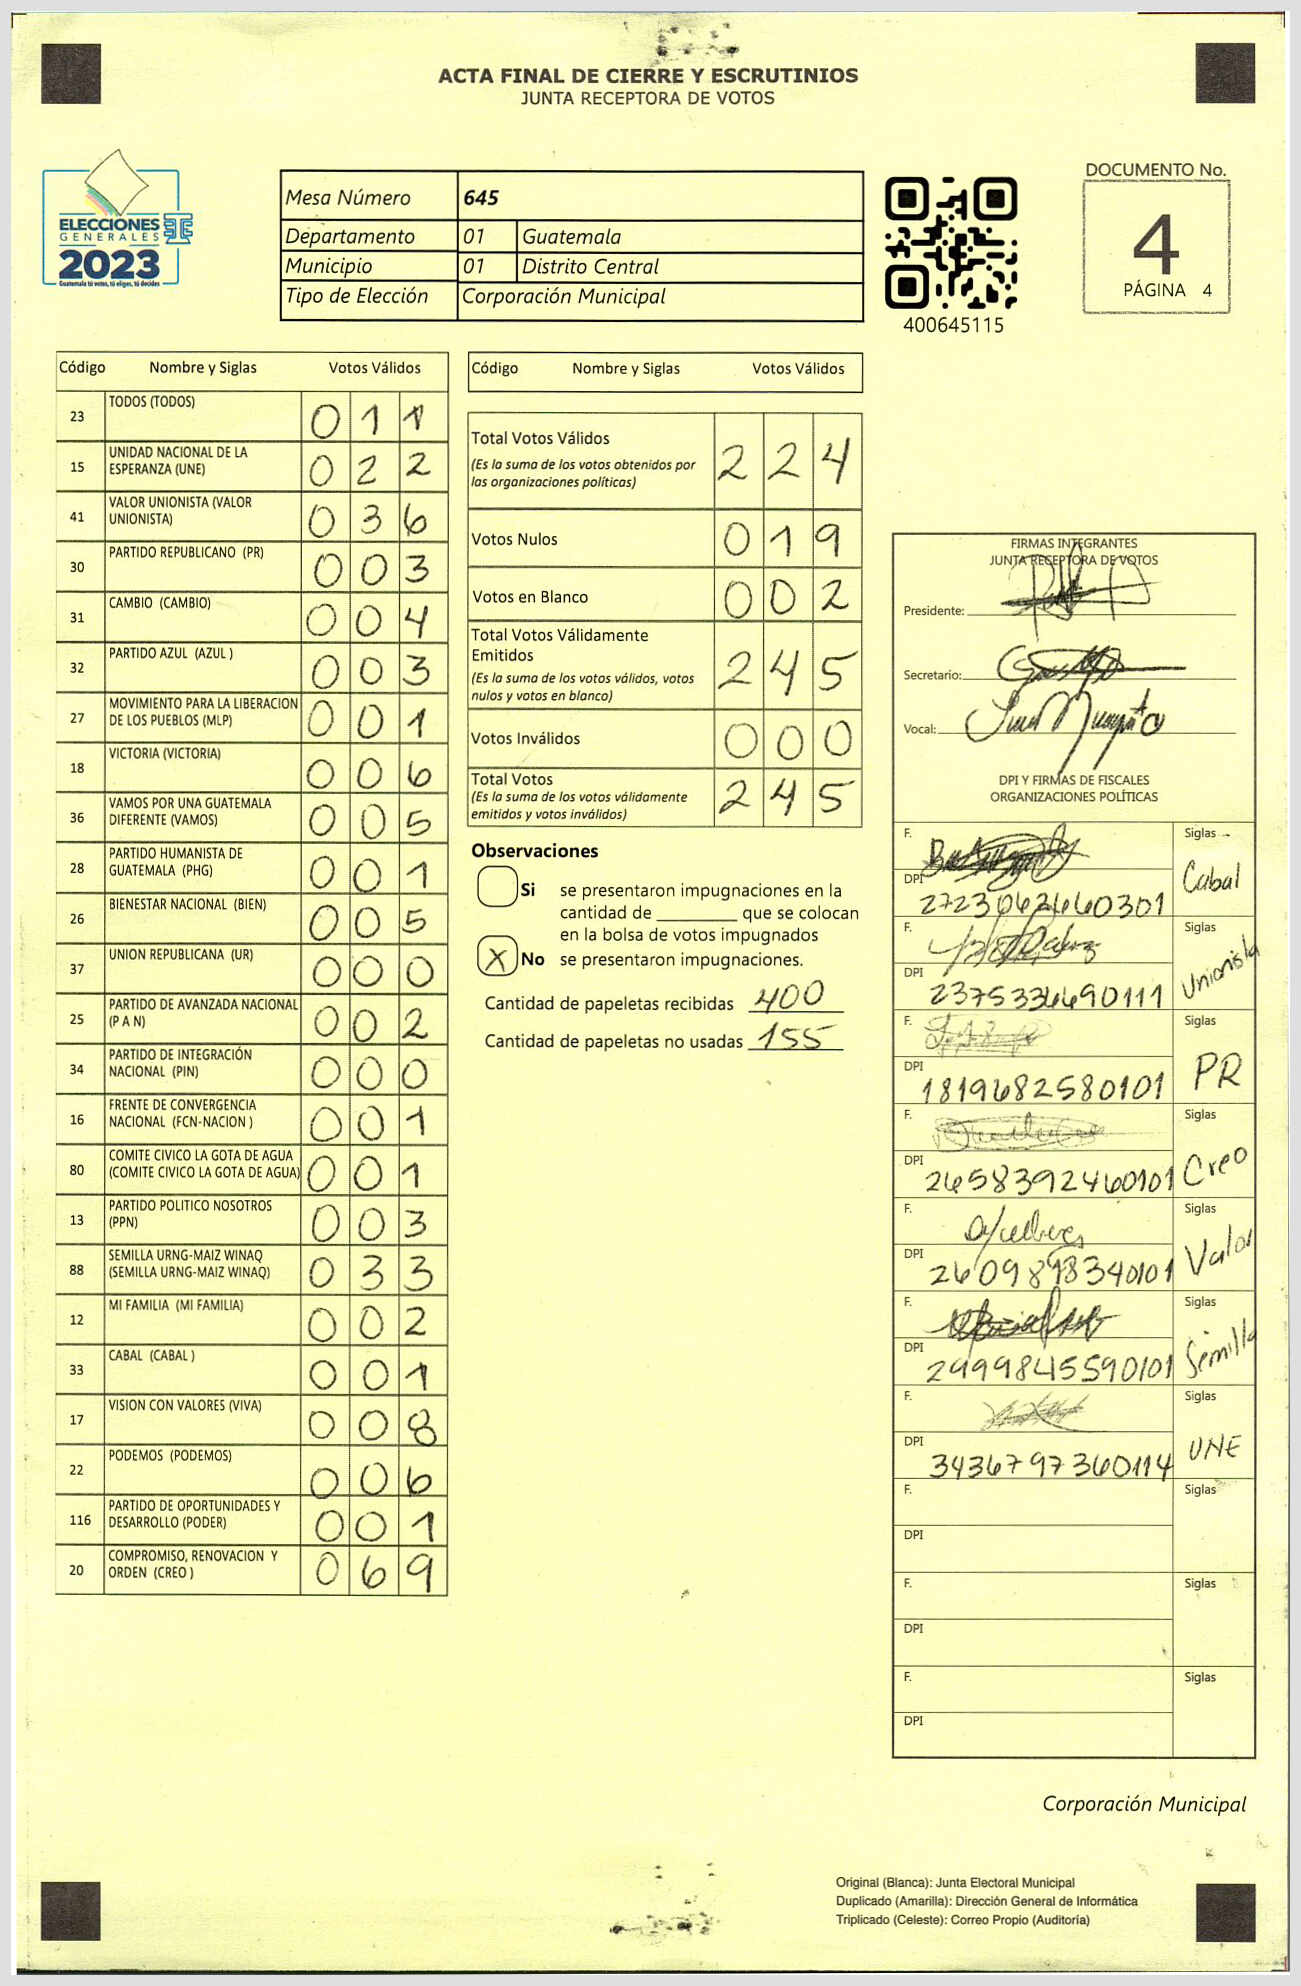 ACTA FINAL DE CIERRE Y ESCRUTINIOS
JUNTA RECEPTORA DE VOTOS
ELECCIONES
GENERALES
2023
Guatemala tú votas, tú eliges, tú decides
Mesa Número 645
Departamento 01 Guatemala
Municipio 01 Distrito Central
Tipo de Elección Corporación Municipal
400645115
DOCUMENTO No.
4
PÁGINA 4
Código Nombre y Siglas Votos Válidos
23 TODOS (TODOS) 0 1 1
15 UNIDAD NACIONAL DE LA
ESPERANZA (UNE) 0 2 2
41 VALOR UNIONISTA (VALOR
UNIONISTA) 0 3 6
30 PARTIDO REPUBLICANO (PR) 0 0 3
31 CAMBIO (CAMBIO) 0 0 4
32 PARTIDO AZUL (AZUL ) 0 0 3
27 MOVIMIENTO PARA LA LIBERACION
DE LOS PUEBLOS (MLP) 0 0 1
18 VICTORIA (VICTORIA) 0 0 6
36 VAMOS POR UNA GUATEMALA
DIFERENTE (VAMOS) 0 0 5
28 PARTIDO HUMANISTA DE
GUATEMALA (PHG) 0 0 1
26 BIENESTAR NACIONAL (BIEN) 0 0 5
37 UNION REPUBLICANA (UR) 0 0 0
25 PARTIDO DE AVANZADA NACIONAL
(P A N) 0 0 2
34 PARTIDO DE INTEGRACIÓN
NACIONAL (PIN) 0 0 0
16 FRENTE DE CONVERGENCIA
NACIONAL (FCN-NACION ) 0 0 1
80 COMITE CIVICO LA GOTA DE AGUA
(COMITE CIVICO LA GOTA DE AGUA) 0 0 1
13 PARTIDO POLITICO NOSOTROS
(PPN) 0 0 3
88 SEMILLA URNG-MAIZ WINAQ
(SEMILLA URNG-MAIZ WINAQ) 0 3 3
12 MI FAMILIA (MI FAMILIA) 0 0 2
33 CABAL (CABAL ) 0 0 1
17 VISION CON VALORES (VIVA) 0 0 8
22 PODEMOS (PODEMOS) 0 0 6
116 PARTIDO DE OPORTUNIDADES Y
DESARROLLO (PODER) 0 0 1
20 COMPROMISO, RENOVACION Y
ORDEN (CREO ) 0 6 9
Código Nombre y Siglas Votos Válidos
Total Votos Válidos 2 2 4
(Es la suma de los votos obtenidos por
las organizaciones políticas)
Votos Nulos 0 1 9
Votos en Blanco 0 0 2
Total Votos Válidamente
Emitidos 2 4 5
(Es la suma de los votos válidos, votos
nulos y votos en blanco)
Votos Inválidos 0 0 0
Total Votos 2 4 5
(Es la suma de los votos válidamente
emitidos y votos inválidos)
Observaciones
Si se presentaron impugnaciones en la
cantidad de ________ que se colocan
en la bolsa de votos impugnados
X No se presentaron impugnaciones.
Cantidad de papeletas recibidas 400
Cantidad de papeletas no usadas 155
FIRMAS INTEGRANTES
JUNTA RECEPTORA DE VOTOS
Presidente:
Secretario:
Vocal:
DPI Y FIRMAS DE FISCALES
ORGANIZACIONES POLÍTICAS
F. Siglas
Cabal
DPI 2723062660301
F. Siglas
Unionista
DPI 2375336690111
F. Siglas
PR
DPI 1819682580101
F. Siglas
Creo
DPI 2658392460101
F. Siglas
Valor
DPI 2609898340101
F. Siglas
Semilla
DPI 2999845590101
F. Siglas
UNE
DPI 3436797360114
F. Siglas
DPI
F. Siglas
DPI
F. Siglas
DPI
Corporación Municipal
Original (Blanca): Junta Electoral Municipal
Duplicado (Amarilla): Dirección General de Informática
Triplicado (Celeste): Correo Propio (Auditoría)